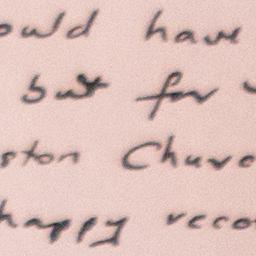 ould have
but for
ston Churc
happy reco